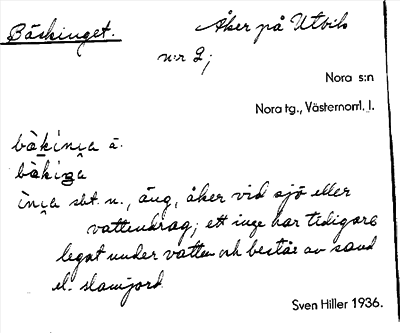 Bäskinget. Åker på Utbils
n:r 2;
Nora s:n
Nora tg., Västernorrl. l.
bàkinia ä.
bàkiga
ìnia sbt. n., äng, åker vid sjö eller
vattendrag; ett inge har tidigare
legat under vatten och består av sand
el. slamjord
Sven Hiller 1936.